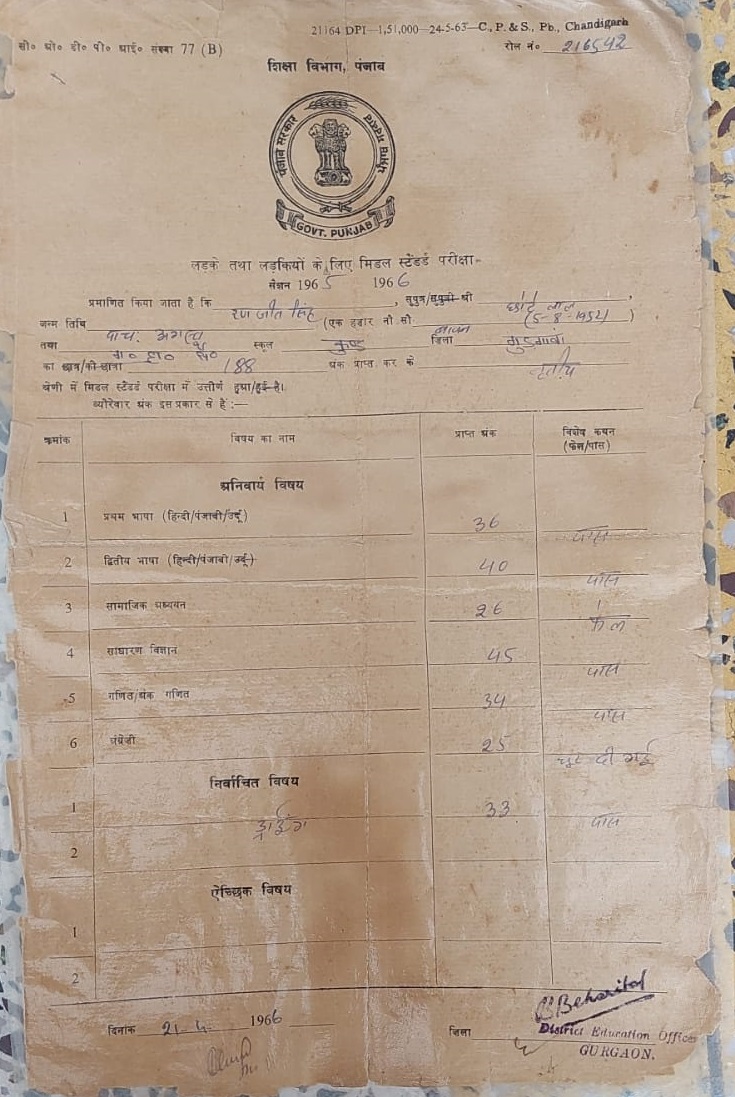 21164 DPI—1,51,000—24-5-63—C., P. & S., Pb., Chandigarh
सी० ओ० डी० पी० आई० संख्या 77 (B)
रोल नं० 216542
शिक्षा विभाग, पंजाब
पंजाब सरकार
GOVT. PUNJAB
लड़के तथा लड़कियों के लिए मिडल स्टेंडर्ड परीक्षा-
सैशन 1965 1966
प्रमाणित किया जाता है कि रण जीत सिंह, सुपुत्र/सुपुत्री श्री छोटे लाल,
जन्म तिथि पाच अगस्त (एक हज़ार नौ सौ बावन (5-8-1952)
तथा ग० हा० स्कूल कुण्ड जिला गुड़गावां
का छात्र/की छात्रा 188 अंक प्राप्त कर के तृतीय
श्रेणी में मिडल स्टेंडर्ड परीक्षा में उत्तीर्ण हुआ/हुई है।
ब्योरेवार अंक इस प्रकार से है :—
क्रमांक विषय का नाम प्राप्त अंक विशेष कथन
(फेल/पास)
अनिवार्य विषय
1 प्रथम भाषा (हिन्दी/पंजाबी/उर्दू) 36 पास
2 द्वितीय भाषा (हिन्दी/पंजाबी/उर्दू) 40 पास
3 सामाजिक अध्ययन 26 फेल
4 साधारण विज्ञान 45 पास
5 गणित/अंक गणित 34 पास
6 अंग्रेज़ी 25 छूट दी गई
निर्वाचित विषय
1 ड्राईंग 33 पास
2
ऐच्छिक विषय
1
2
दिनांक 21-4- 1966
जिला
B Beharilal
District Education Officer
GURGAON.